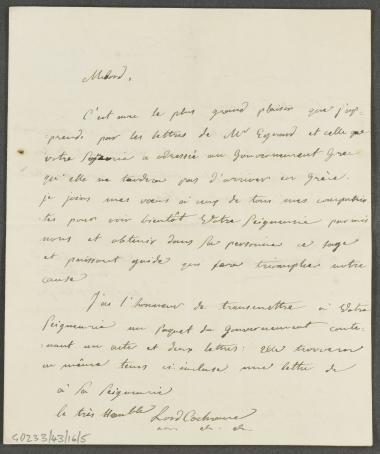 Milord,
C'est avec le plus grand plaisir que j'ap-
-prends par les lettres de Mr Eynard et celle que
votre Seigneurie a adressée au Gouvernement Grec
qu'elle ne tardera pas d'arriver en Grèce.
je joins mes vœux à ceux de tous mes compatrio-
tes pour voir bientôt Votre Seigneurie parmi
nous et obtenir dans sa personne ce sage
et puissant guide qui fera triompher notre
cause
J'ai l'honneur de transmettre à Votre
Seigneurie un paquet du Gouvernement conte-
-nant un acte et deux lettres: Elle trouvera
en même tems ci-incluse une lettre de
à Sa Seigneurie
le très Honble Lord Cochrane
GD233/43/16/5